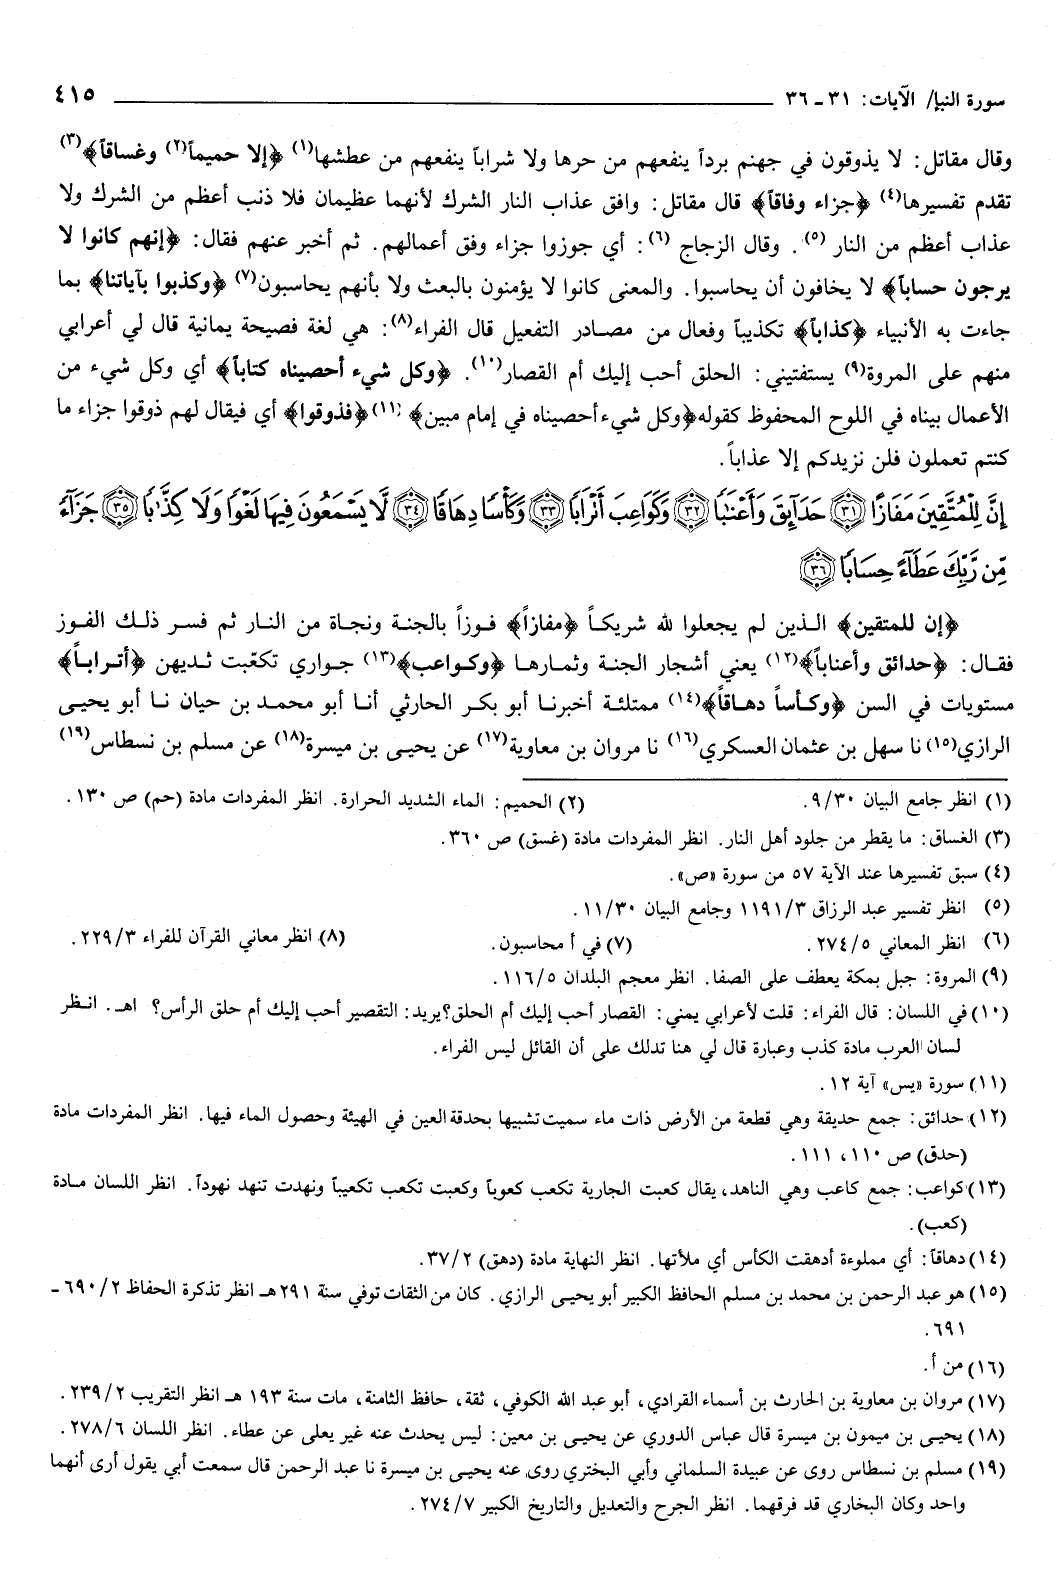 سورة النبإ/ الآيات: ٣١ ـ ٣٦ ٤١٥
وقال مقاتل: لا يذوقون في جهنم برداً ينفعهم من حرها ولا شراباً ينفعهم من عطشها(١) ﴿إلا حميماً(٢) وغساقاً﴾(٣)
تقدم تفسيرها(٤) ﴿جزاء وفاقاً﴾ قال مقاتل: وافق عذاب النار الشرك لأنهما عظيمان فلا ذنب أعظم من الشرك ولا
عذاب أعظم من النار (٥). وقال الزجاج (٦): أي جوزوا جزاء وفق أعمالهم. ثم أخبر عنهم فقال: ﴿إنهم كانوا لا
يرجون حساباً﴾ لا يخافون أن يحاسبوا. والمعنى كانوا لا يؤمنون بالبعث ولا بأنهم يحاسبون(٧) ﴿وكذبوا بآياتنا﴾ بما
جاءت به الأنبياء ﴿كذاباً﴾ تكذيباً وفعال من مصادر التفعيل قال الفراء(٨): هي لغة فصيحة يمانية قال لي أعرابي
منهم على المروة(٩) يستفتيني: الحلق أحب إليك أم القصار(١٠). ﴿وكل شيء أحصيناه كتاباً﴾ أي وكل شيء من
الأعمال بيناه في اللوح المحفوظ كقوله ﴿وكل شيء أحصيناه في إمام مبين﴾(١١) ﴿فذوقوا﴾ أي فيقال لهم ذوقوا جزاء ما
كنتم تعملون فلن نزيدكم إلا عذاباً.
إِنَّ لِلْمُتَّقِينَ مَفَازًا ٣١ حَدَآئِقَ وَأَعْنَٰبًا ٣٢ وَكَوَاعِبَ أَتْرَابًا ٣٣ وَكَأْسًا دِهَاقًا ٣٤ لَّا يَسْمَعُونَ فِيهَا لَغْوًا وَلَا كِذَّٰبًا ٣٥ جَزَآءً
مِّن رَّبِّكَ عَطَآءً حِسَابًا ٣٦
﴿إن للمتقين﴾ الذين لم يجعلوا لله شريكاً ﴿مفازاً﴾ فوزاً بالجنة ونجاة من النار ثم فسر ذلك الفوز
فقال: ﴿حدائق وأعناباً﴾(١٢) يعني أشجار الجنة وثمارها ﴿وكواعب﴾(١٣) جواري تكعّبت ثديهن ﴿أتراباً﴾
مستويات في السن ﴿وكأساً دهاقاً﴾(١٤) ممتلئة أخبرنا أبو بكر الحارثي أنا أبو محمد بن حيان نا أبو يحيى
الرازي(١٥) نا سهل بن عثمان العسكري(١٦) نا مروان بن معاوية(١٧) عن يحيى بن ميسرة(١٨) عن مسلم بن نسطاس(١٩)
(١) انظر جامع البيان ٩/٣٠. (٢) الحميم: الماء الشديد الحرارة. انظر المفردات مادة (حم) ص ١٣٠.
(٣) الغساق: ما يقطر من جلود أهل النار. انظر المفردات مادة (غسق) ص ٣٦٠.
(٤) سبق تفسيرها عند الآية ٥٧ من سورة «ص».
(٥) انظر تفسير عبد الرزاق ١١٩١/٣ وجامع البيان ١١/٣٠.
(٦) انظر المعاني ٢٧٤/٥. (٧) في أ محاسبون. (٨) انظر معاني القرآن للفراء ٢٢٩/٣.
(٩) المروة: جبل بمكة يعطف على الصفا. انظر معجم البلدان ١١٦/٥.
(١٠) في اللسان: قال الفراء: قلت لأعرابي يمني: القصار أحب إليك أم الحلق؟ يريد: التقصير أحب إليك أم حلق الرأس؟ اهـ. انظر
لسان العرب مادة كذب وعبارة قال لي هنا تدلك على أن القائل ليس الفراء.
(١١) سورة «يس» آية ١٢.
(١٢) حدائق: جمع حديقة وهي قطعة من الأرض ذات ماء سميت تشبيها بحدقة العين في الهيئة وحصول الماء فيها. انظر المفردات مادة
(حدق) ص ١١٠، ١١١.
(١٣) كواعب: جمع كاعب وهي الناهد، يقال كعبت الجارية تكعب كعوباً وكعبت تكعب تكعيباً ونهدت تنهد نهوداً. انظر اللسان مادة
(كعب).
(١٤) دهاقاً: أي مملوءة أدهقت الكأس أي ملأتها. انظر النهاية مادة (دهق) ٣٧/٢.
(١٥) هو عبد الرحمن بن محمد بن مسلم الحافظ الكبير أبو يحيى الرازي. كان من الثقات توفي سنة ٢٩١ هـ انظر تذكرة الحفاظ ٦٩٠/٢ ـ
٦٩١.
(١٦) من أ.
(١٧) مروان بن معاوية بن الحارث بن أسماء القرادي، أبو عبد الله الكوفي، ثقة، حافظ الثامنة، مات سنة ١٩٣ هـ انظر التقريب ٢٣٩/٢.
(١٨) يحيى بن ميمون بن ميسرة قال عباس الدوري عن يحيى بن معين: ليس يحدث عنه غير يعلى عن عطاء. انظر اللسان ٢٧٨/٦.
(١٩) مسلم بن نسطاس روى عن عبيدة السلماني وأبي البختري روى عنه يحيى بن ميسرة نا عبد الرحمن قال سمعت أبي يقول أرى أنهما
واحد وكان البخاري قد فرقهما. انظر الجرح والتعديل والتاريخ الكبير ٢٧٤/٧.